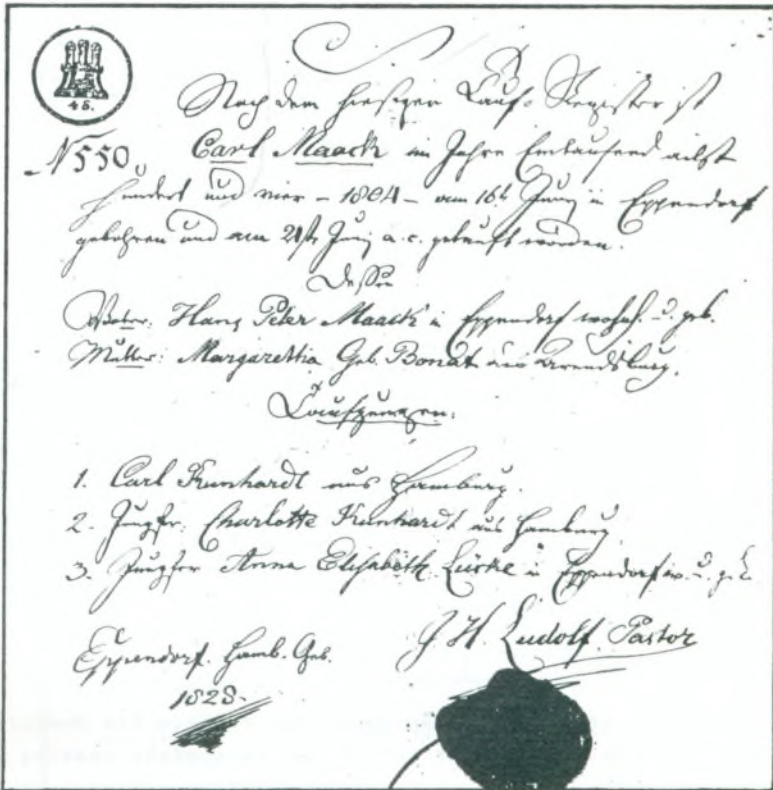 4 S.
Nach dem hiesigen Tauf-Register ist
N 550. Carl Maack im Jahre Eintausend acht
hundert und vier - 1804 - am 16t Junij in Eppendorf
gebohren und am 21st Junij a. c. getauft worden.
Dessen
Vater: Hans Peter Maack in Eppendorf wohnh. u. geb.
Mutter: Margaretha Geb. Bonat aus Arendsburg.
Taufzeugen:
1. Carl Kunhardt aus Hamburg.
2. Jungfr. Charlotte Kunhardt aus Hamburg
3. Jungfer Anna Elisabeth Lücke in Eppendorf w. u. geb.
Eppendorf. Hamb. Geb.
1828.
J H. Ludolf. Pastor